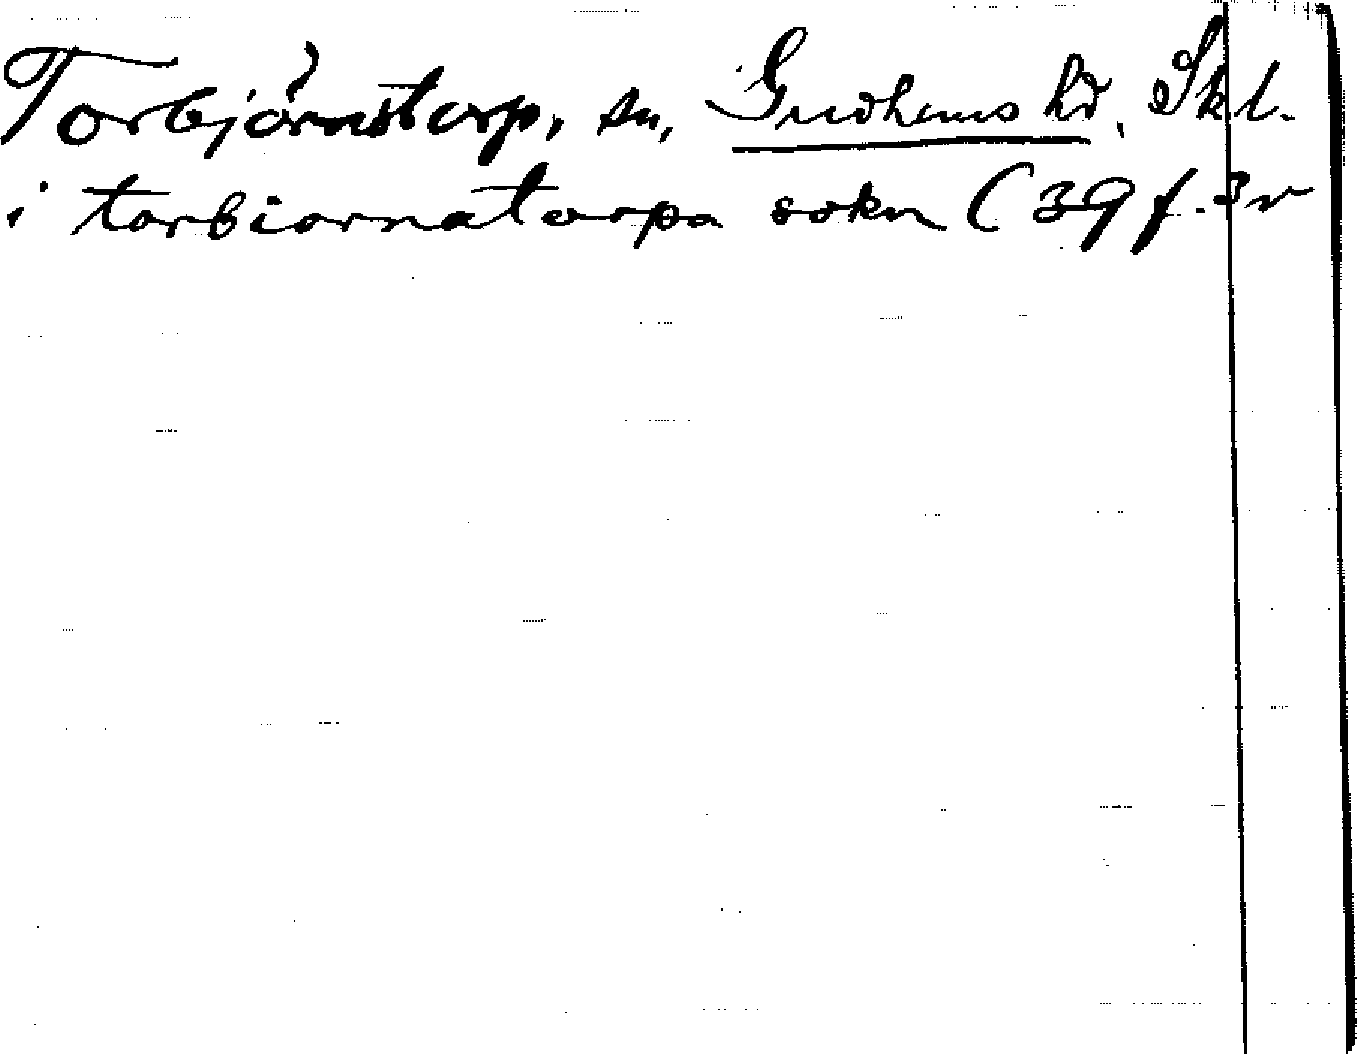 Torbjörnstorp, sn, Gudhems hd, Skl.
i torbiornatorpa sokn (39 f. 3 v